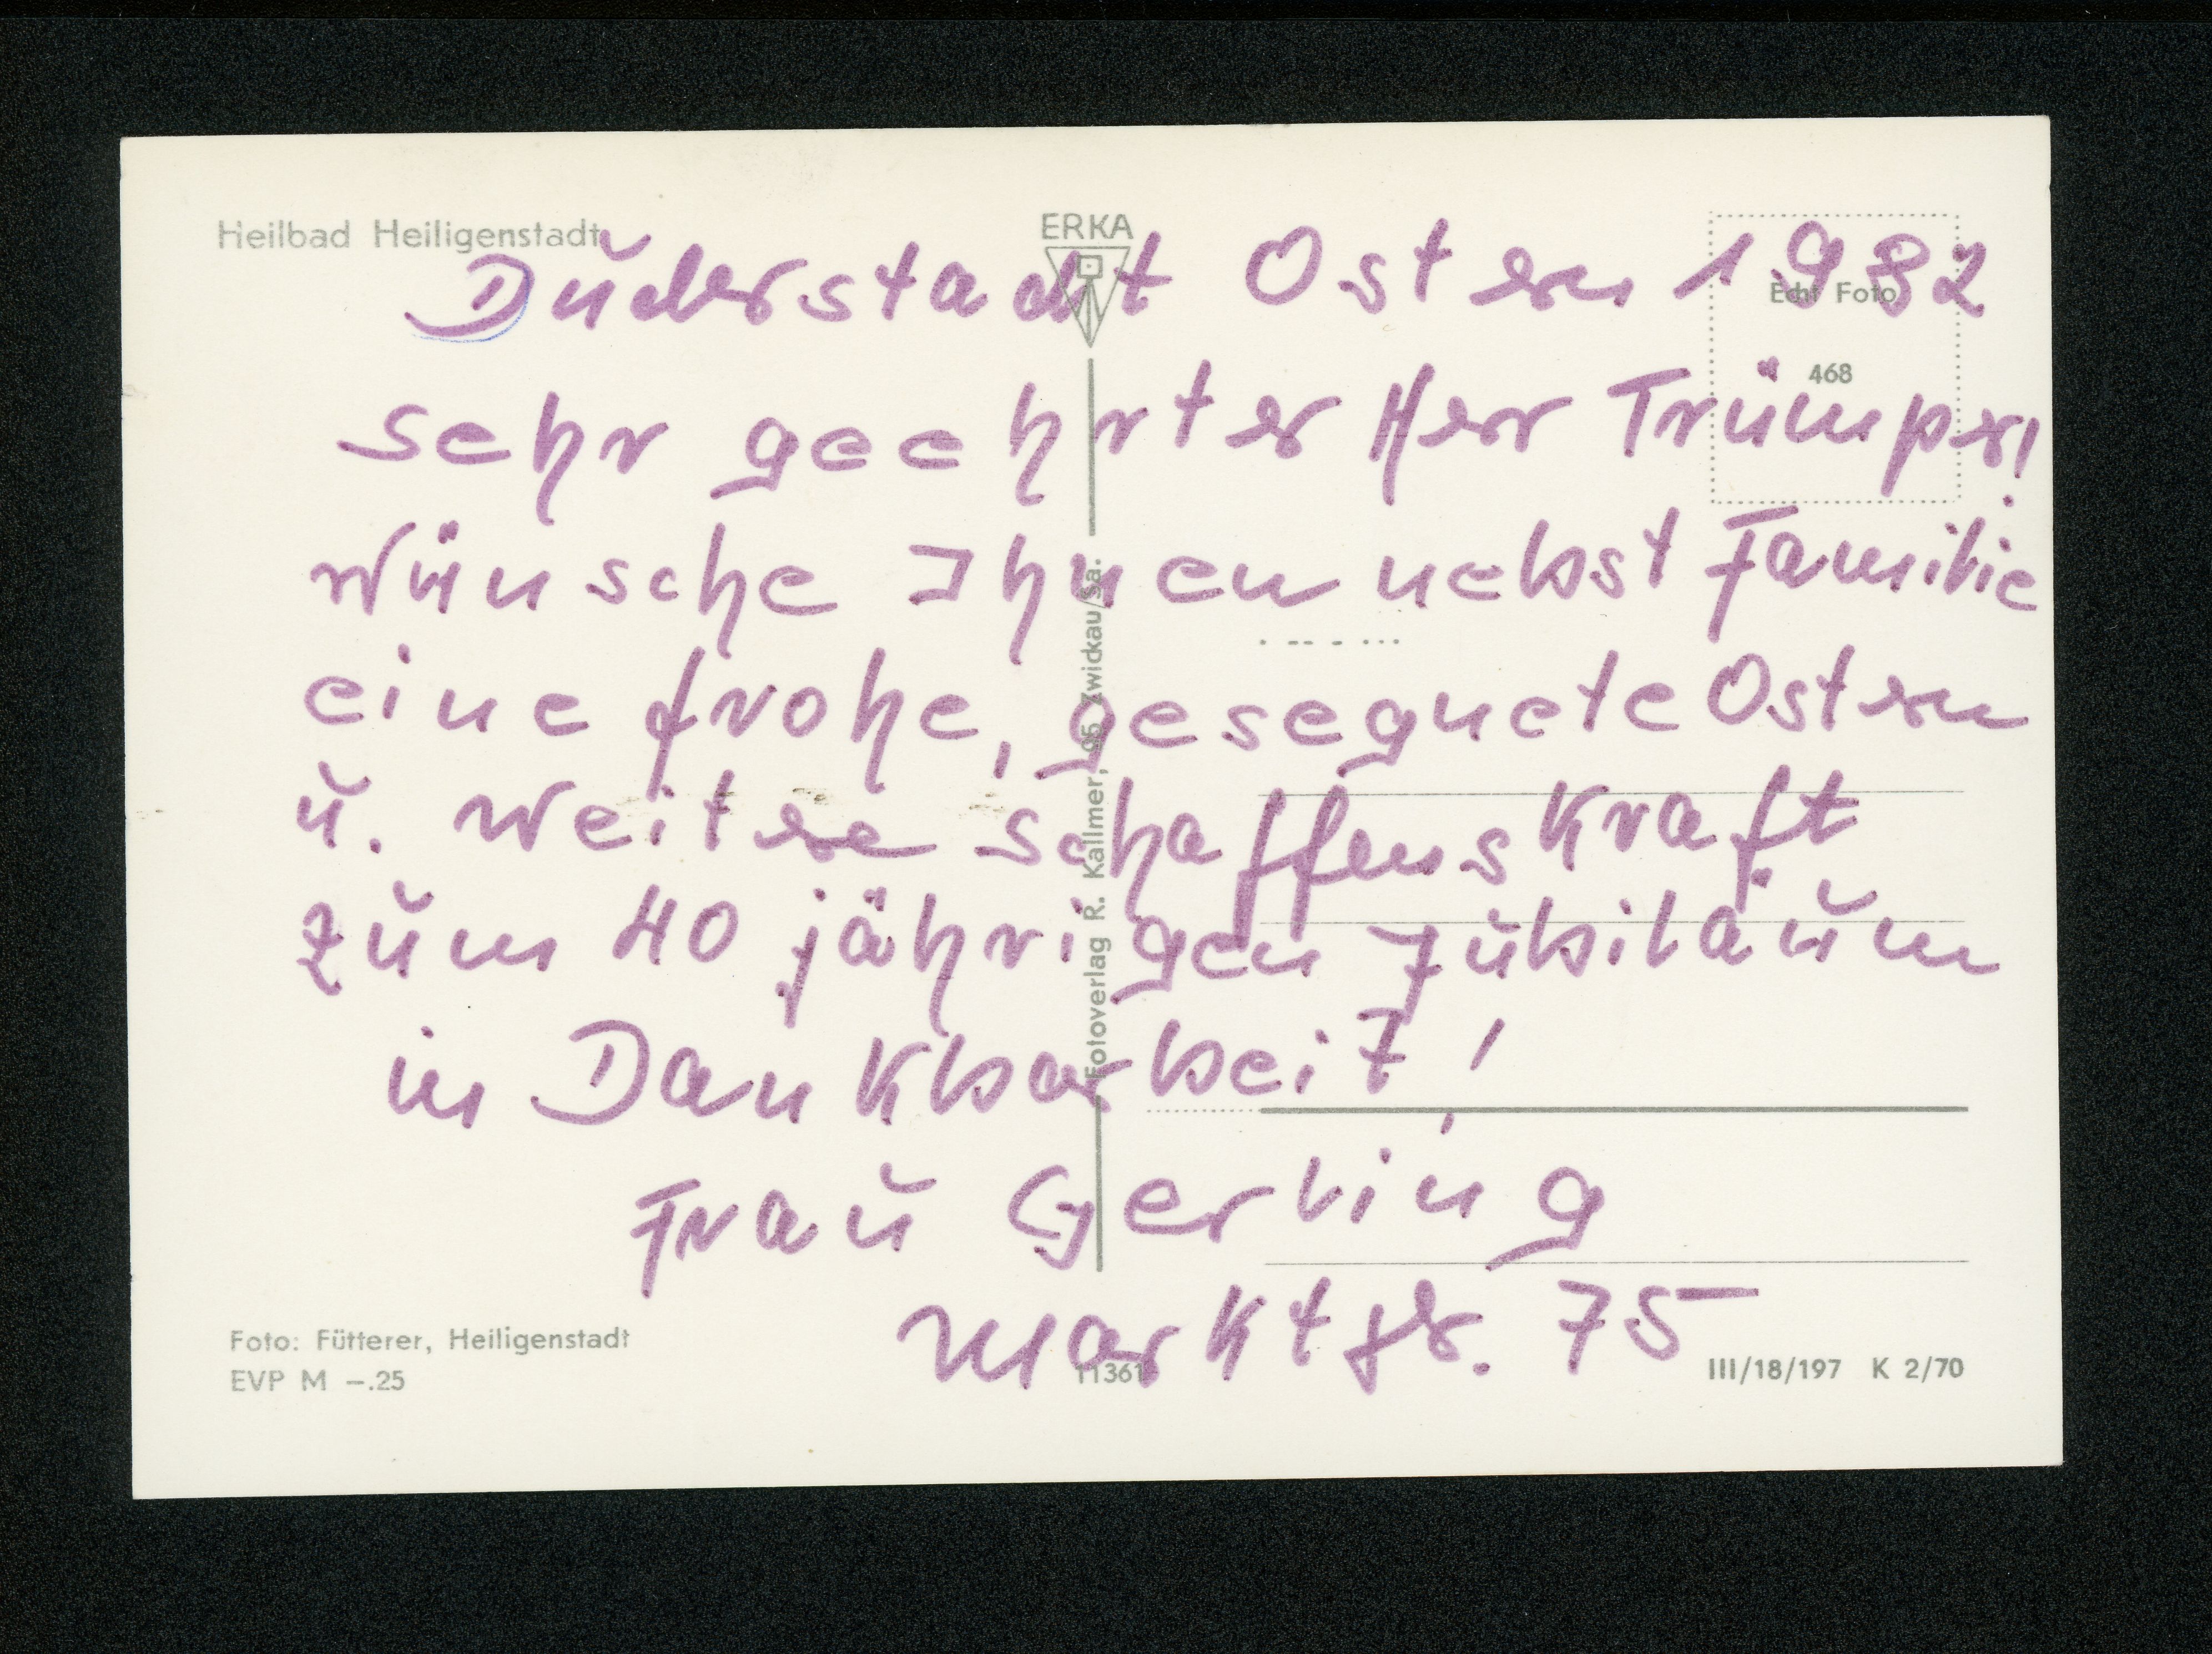 Heilbad Heiligenstadt
ERKA
Echt Foto
468
Duderstadt Ostern 1982
Sehr geehrter Herr Trümper!
Wünsche Ihnen nebst Familie
eine frohe, gesegnete Ostern
u. weitere Schaffenskraft
zum 40 jährigen Jubiläum
in Dankbarkeit!
Frau Gerling
Marktstr. 75
Fotoverlag R. Kallmer, 95 Zwickau/Sa.
Foto: Fütterer, Heiligenstadt
EVP M –.25
11361
III/18/197 K 2/70